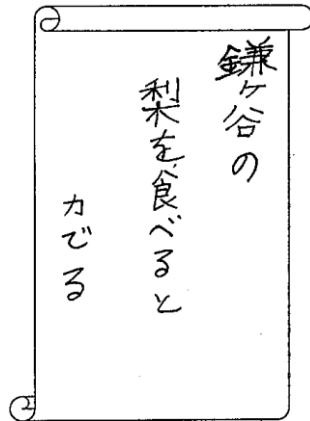 鎌ヶ谷の
梨を食べると
力でる